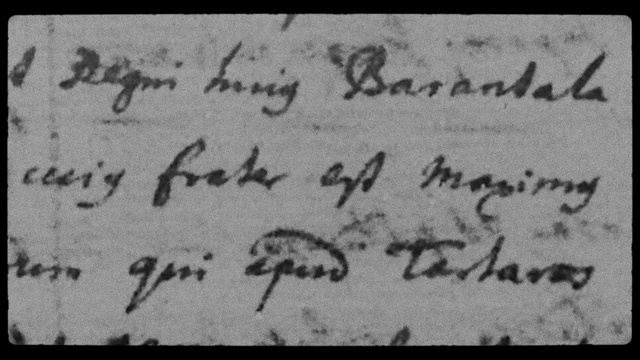 Regni huig Barantala
cuig frater est Maximg
rum qui apud Tartaros